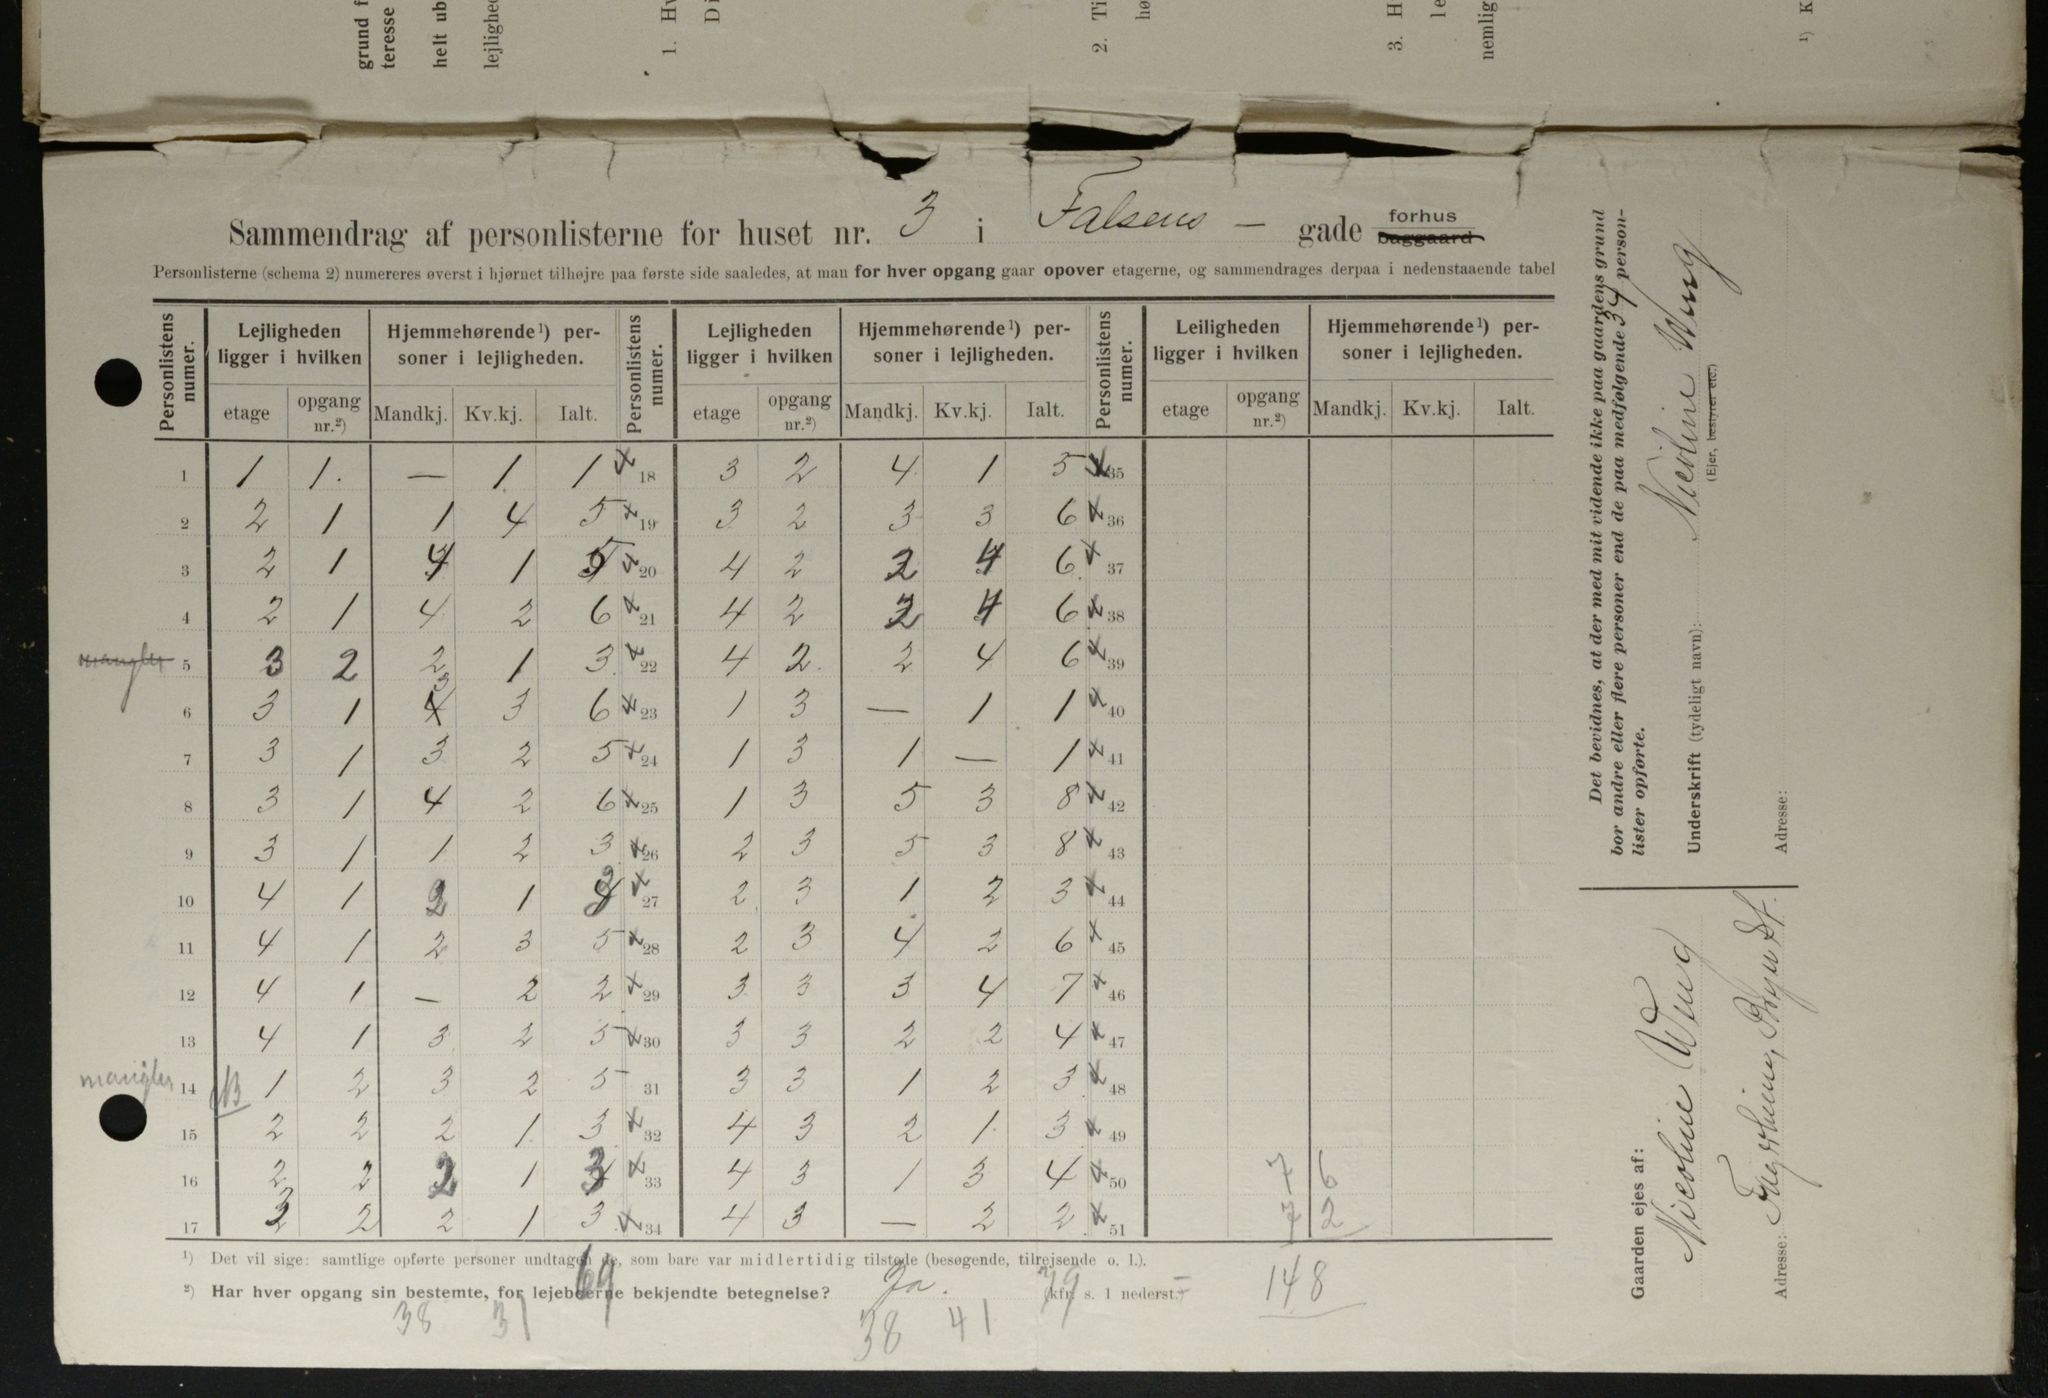 grund f
teresse
helt ub
lejlighed
1. Hv
Di
2. Ti
hø
3. H
le
nemlig
¹) K
Sammendrag af personlisterne for huset nr. 3 i Falsens — gade forhus baggaard
Personlisterne (schema 2) numereres øverst i hjørnet tilhøjre paa første side saaledes, at man for hver opgang gaar opover etagerne, og sammendrages derpaa i nedenstaaende tabel
Personlistens numer. | Lejligheden ligger i hvilken | Hjemmehørende¹) personer i lejligheden. | Personlistens numer. | Lejligheden ligger i hvilken | Hjemmehørende¹) personer i lejligheden. | Personlistens numer. | Leiligheden ligger i hvilken | Hjemmehørende¹) personer i lejligheden.
etage | opgang nr.²) | Mandkj. | Kv.kj. | Ialt. | etage | opgang nr.²) | Mandkj. | Kv.kj. | Ialt. | etage | opgang nr.²) | Mandkj. | Kv.kj. | Ialt.
1 | 1 | 1. | — | 1 | 1 | 18 | 3 | 2 | 4 | 1 | 5 | 35
2 | 2 | 1 | 1 | 4 | 5 | 19 | 3 | 2 | 3 | 3 | 6 | 36
3 | 2 | 1 | 4 | 1 | 5 | 20 | 4 | 2 | 2 | 4 | 6 | 37
4 | 2 | 1 | 4 | 2 | 6 | 21 | 4 | 2 | 2 | 4 | 6 | 38
mangler 5 | 3 | 2 | 2 | 1 | 3 | 22 | 4 | 2 | 2 | 4 | 6 | 39
6 | 3 | 1 | 3 | 3 | 6 | 23 | 1 | 3 | — | 1 | 1 | 40
7 | 3 | 1 | 3 | 2 | 5 | 24 | 1 | 3 | 1 | — | 1 | 41
8 | 3 | 1 | 4 | 2 | 6 | 25 | 1 | 3 | 5 | 3 | 8 | 42
9 | 3 | 1 | 1 | 2 | 3 | 26 | 2 | 3 | 5 | 3 | 8 | 43
10 | 4 | 1 | 2 | 1 | 3 | 27 | 2 | 3 | 1 | 2 | 3 | 44
11 | 4 | 1 | 2 | 3 | 5 | 28 | 2 | 3 | 4 | 2 | 6 | 45
12 | 4 | 1 | — | 2 | 2 | 29 | 3 | 3 | 3 | 4 | 7 | 46
13 | 4 | 1 | 3 | 2 | 5 | 30 | 3 | 3 | 2 | 2 | 4 | 47
mangler 14 | 1 | 2 | 3 | 2 | 5 | 31 | 3 | 3 | 1 | 2 | 3 | 48
15 | 2 | 2 | 2 | 1 | 3 | 32 | 4 | 3 | 2 | 1 | 3 | 49
16 | 2 | 2 | 2 | 1 | 3 | 33 | 4 | 3 | 1 | 3 | 4 | 50 | 7 | 6
17 | 3 | 2 | 2 | 1 | 3 | 34 | 4 | 3 | — | 2 | 2 | 51 | 7 | 2
¹) Det vil sige: samtlige opførte personer undtagen de, som bare var midlertidig tilstede (besøgende, tilrejsende o. l.).
²) Har hver opgang sin bestemte, for lejeboerne bekjendte betegnelse? Ja. (kfr. s. 1 nederst.)
38 31 69 38 41 79 148
Det bevidnes, at der med mit vidende ikke paa gaardens grund
bor andre eller flere personer end de paa medfølgende 34 person-
lister opførte.
Underskrift (tydeligt navn): Nicoline Wing
(Ejer, bestyrer etc.)
Adresse:
Gaarden ejes af:
Nicoline Wing
Adresse: